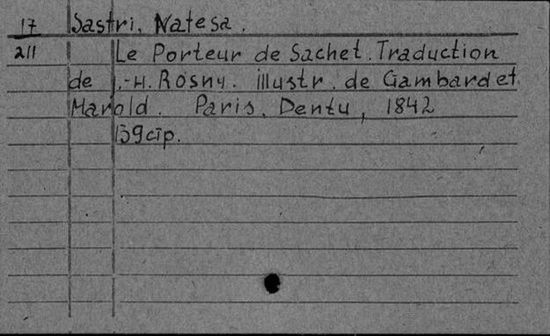 17 Sastri, Natesa.
211 Le Porteur de Sachet. Traduction
de J.-H. Rosny. illustr. de Gambard et
Marold. Paris, Dentu, 1842
139 стр.